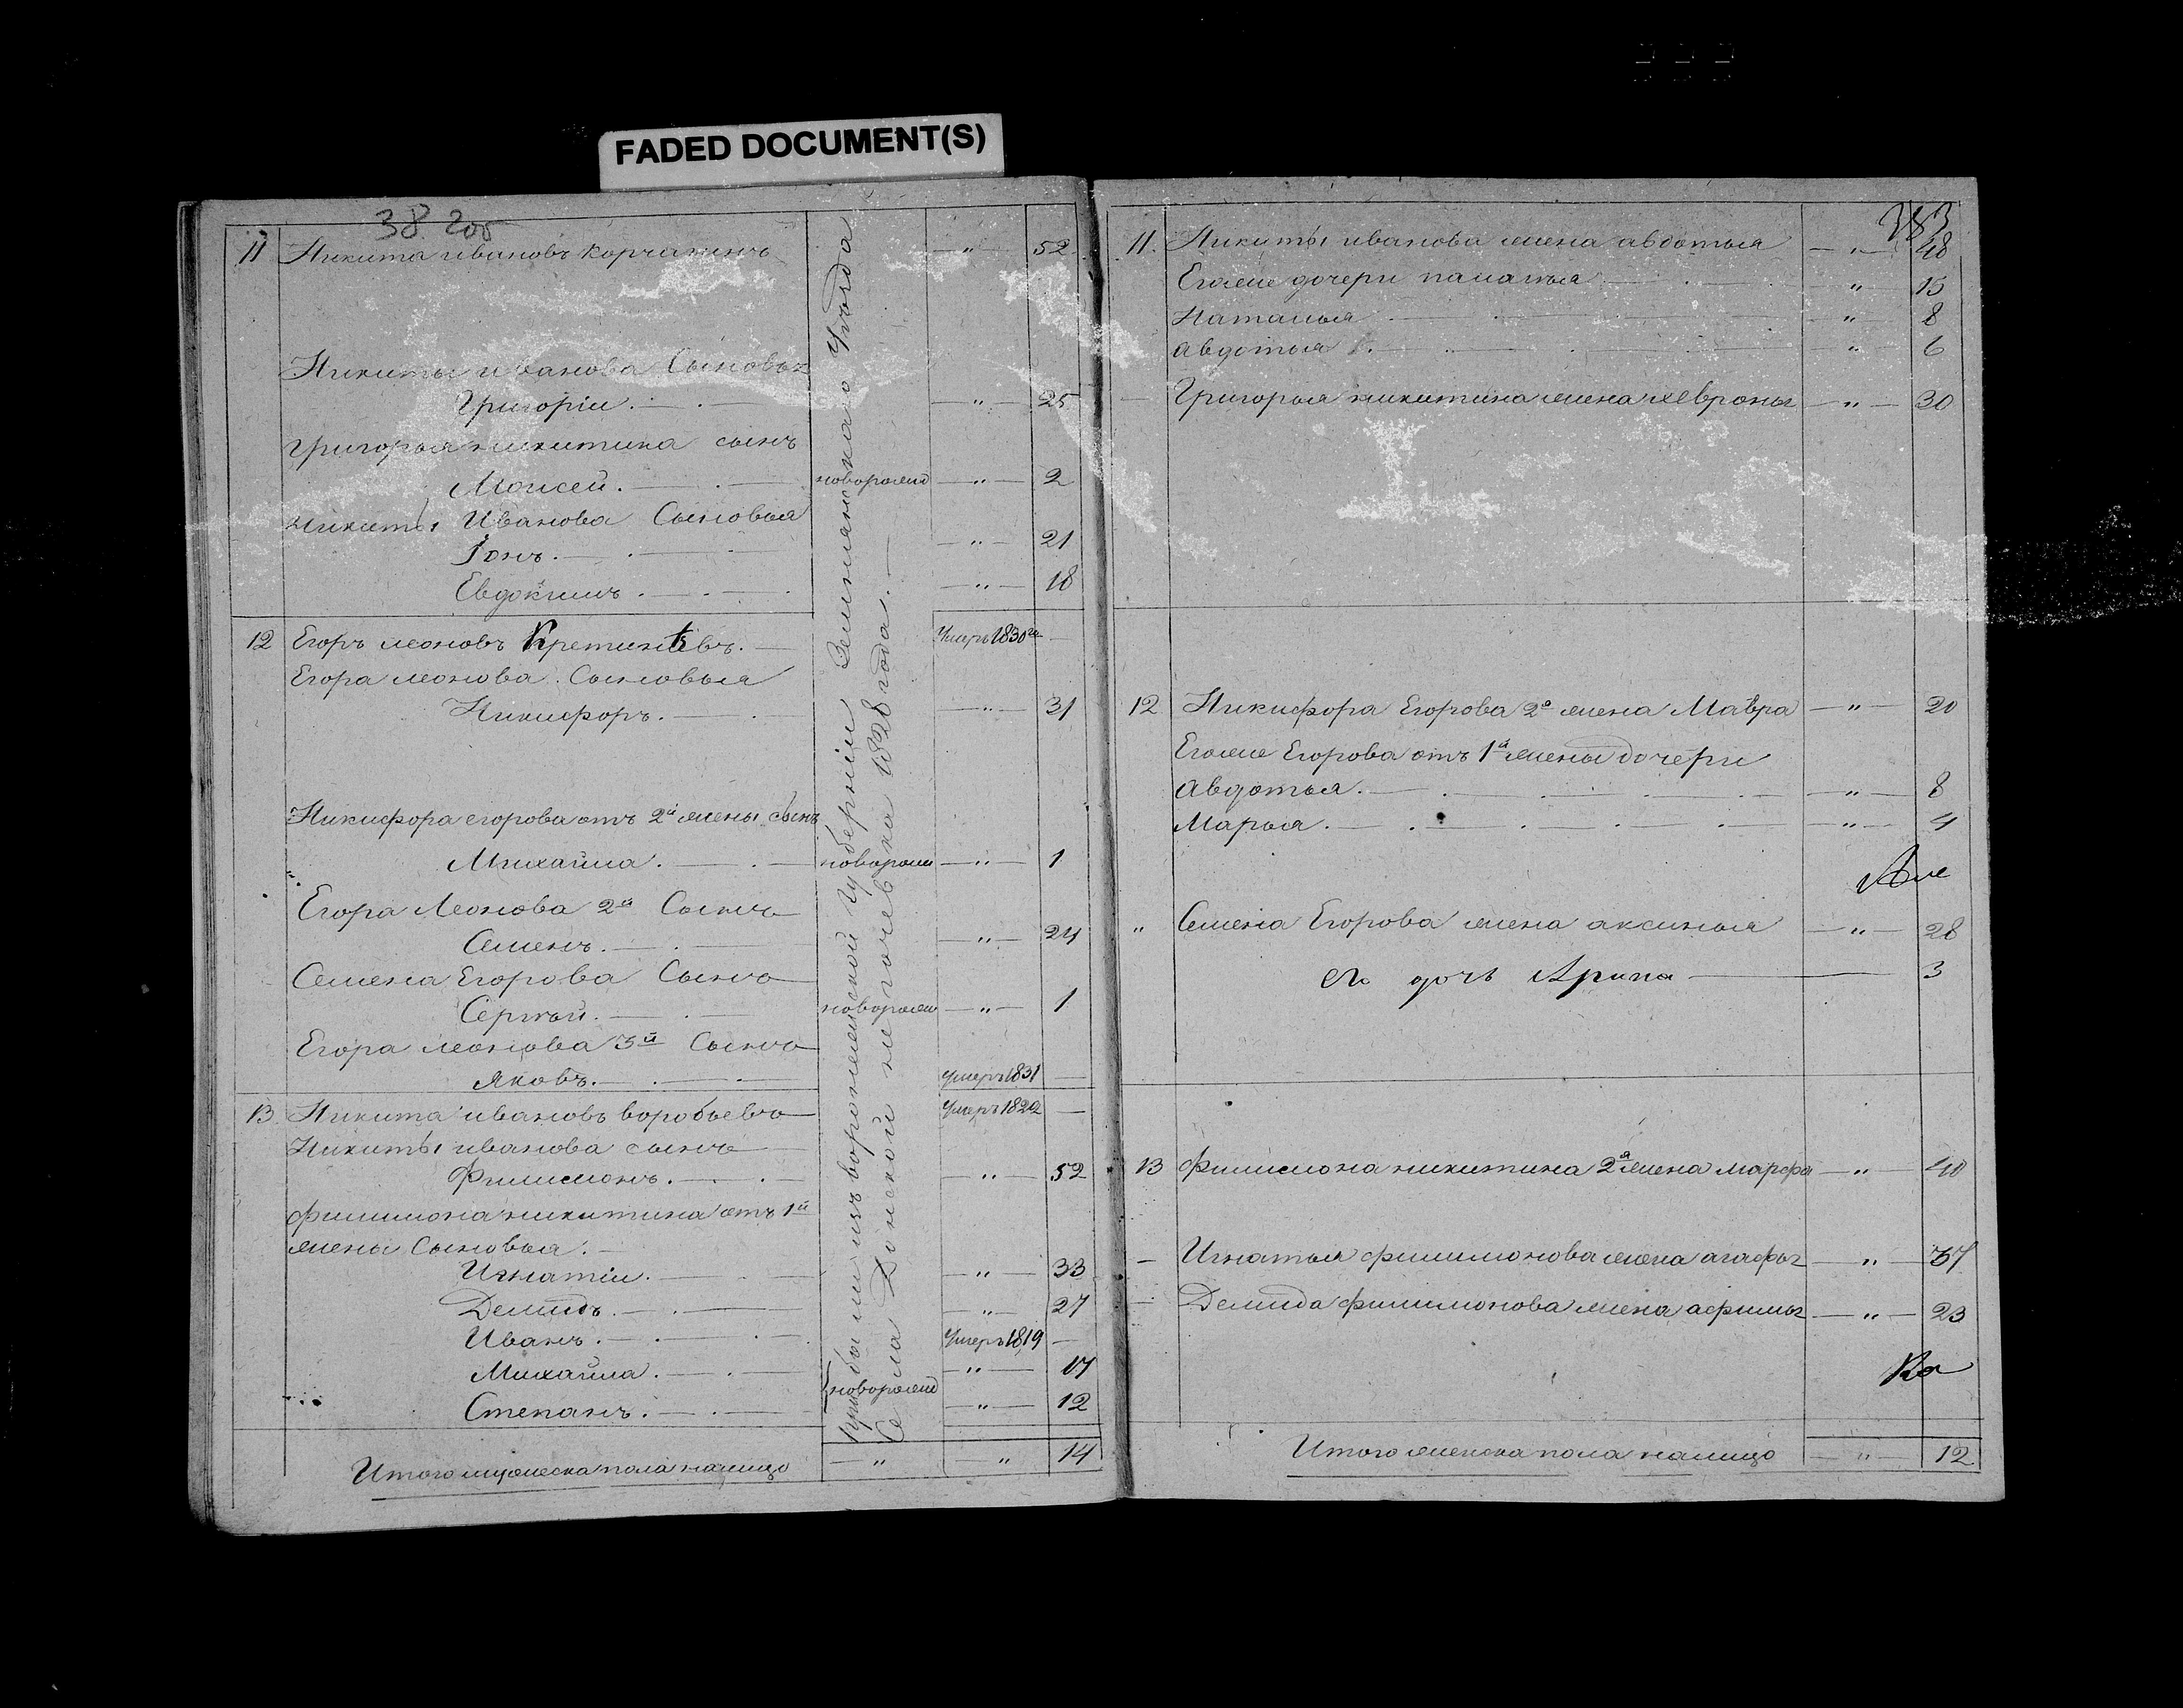 FADED DOCUMENT(S)
38 2об
11 Никита ивановъ Корчагинъ „ 52
Никиты иванова Сыновья
Григорій. „ 25
Григорья никитина сынъ
Моисей. новорожд „ 2
никиты Иванова Сыновья
Іонъ. „ 21
Евдокимъ. „ 18
12 Егоръ леоновъ Умеръ 1830го
Егора леонова. Сыновья
Никифоръ. „ 31
Никифора егорова отъ 2й жены сынъ
Михайла. новорож „ 1
Егора Леонова 2й Сынъ
Семенъ. „ 24
Семена Егорова Сынъ
Сергѣй. новорож „ 1
Егора леонова 3й Сынъ
Яковъ. Умеръ 1831
13 Никита ивановъ воробьевъ Умеръ 1822
Никиты иванова сынъ
Филимонъ. „ 52
филимона никитина отъ 1й
жены Сыновья.
Игнатій. „ 33
Демидъ. „ 27
Иванъ. Умеръ 1819
Михайла. новорожд „ 17
Степанъ. „ 12
Итого мужеска пола налицо „ „ 14
Прибыли изъ воронежской губерніи Землянскаго Уѣзда
Села Донской 1828 года.
383
11. Никиты иванова жена авдотья „ 48
Егоже дочери палагья „ 15
Наталья „ 8
авдотья „ 6
Григорья никитина жена хевронья „ 30
12 Никифора Егорова 2я жена Мавра „ 20
Егоже Егорова отъ 1й жены дочери
Авдотья. „ 8
Марья. „ 4
„ Семена Егорова жена аксинья „ 28
его дочь Арина 3
13 филимона никитина 2я жена марфа „ 40
Игнатья филимонова жена агафья „ 37
Демида филимонова жена афимья „ 23
Итого женска пола налицо „ 12